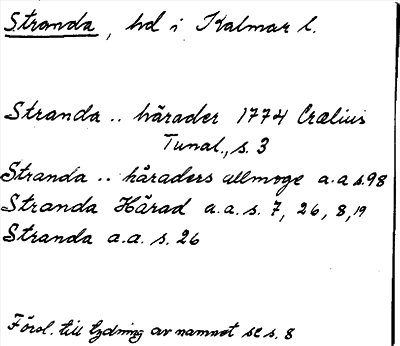 Stranda, hd i Kalmar l.
Stranda .. härader 1774 Crælius
Tunal., s. 3
Stranda .. häraders allmoge a.a s.98
Stranda Härad a.a. s. 7, 26, 8, 19
Stranda a.a. s. 26
Försl. till tydning av namnet se s. 8